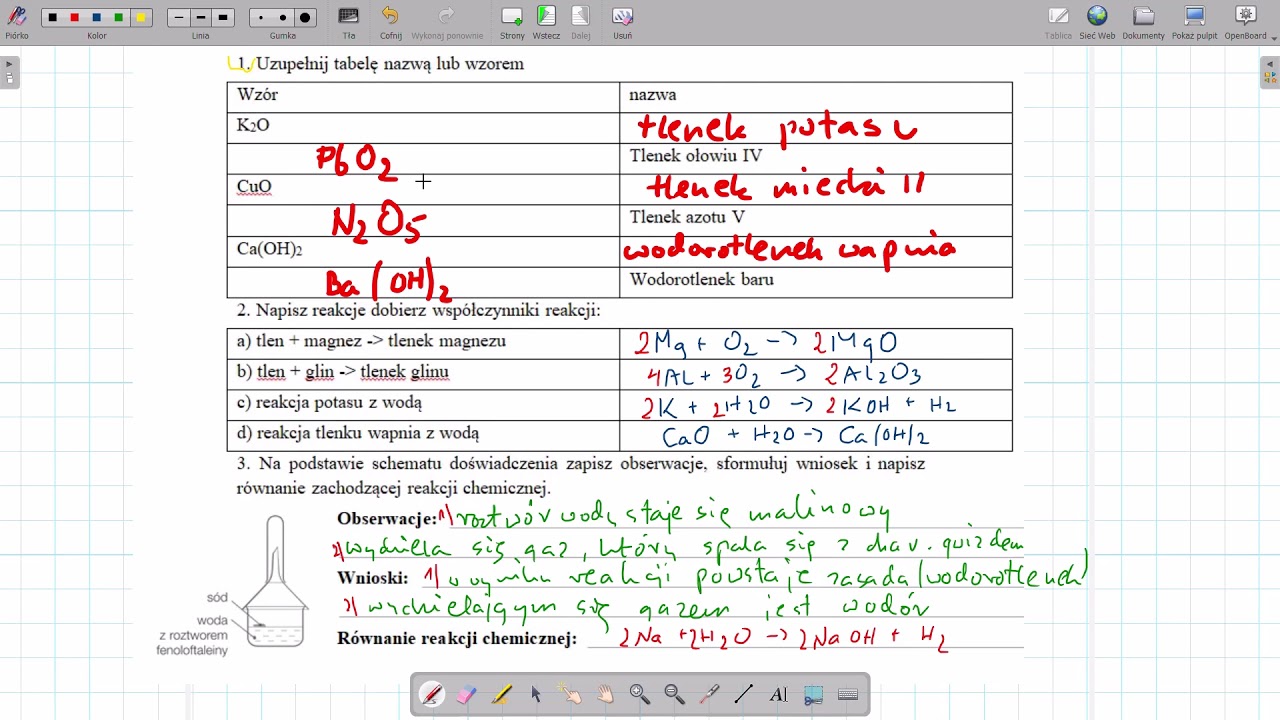 Piórko Kolor Linia Gumka Tła Cofnij Wykonaj ponownie Strony Wstecz Dalej Usuń Tablica Sieć Web Dokumenty Pokaż pulpit OpenBoard
1. Uzupełnij tabelę nazwą lub wzorem
Wzór nazwa
K2O tlenek potasu
PbO2 Tlenek ołowiu IV
CuO tlenek miedzi II
N2O5 Tlenek azotu V
Ca(OH)2 wodorotlenek wapnia
Ba(OH)2 Wodorotlenek baru
2. Napisz reakcje dobierz współczynniki reakcji:
a) tlen + magnez -> tlenek magnezu 2Mg + O2 -> 2MgO
b) tlen + glin -> tlenek glinu 4Al + 3O2 -> 2Al2O3
c) reakcja potasu z wodą 2K + 2H2O -> 2KOH + H2
d) reakcja tlenku wapnia z wodą CaO + H2O -> Ca(OH)2
3. Na podstawie schematu doświadczenia zapisz obserwacje, sformułuj wniosek i napisz
równanie zachodzącej reakcji chemicznej.
Obserwacje: 1) roztwór wody staje się malinowy
2) wydziela się gaz, który spala się z char. gwizdem
Wnioski: 1) w wyniku reakcji powstaje zasada (wodorotlenek)
2) wydzielającym się gazem jest wodór
Równanie reakcji chemicznej: 2Na + 2H2O -> 2NaOH + H2
sód
woda
z roztworem
fenoloftaleiny
AI